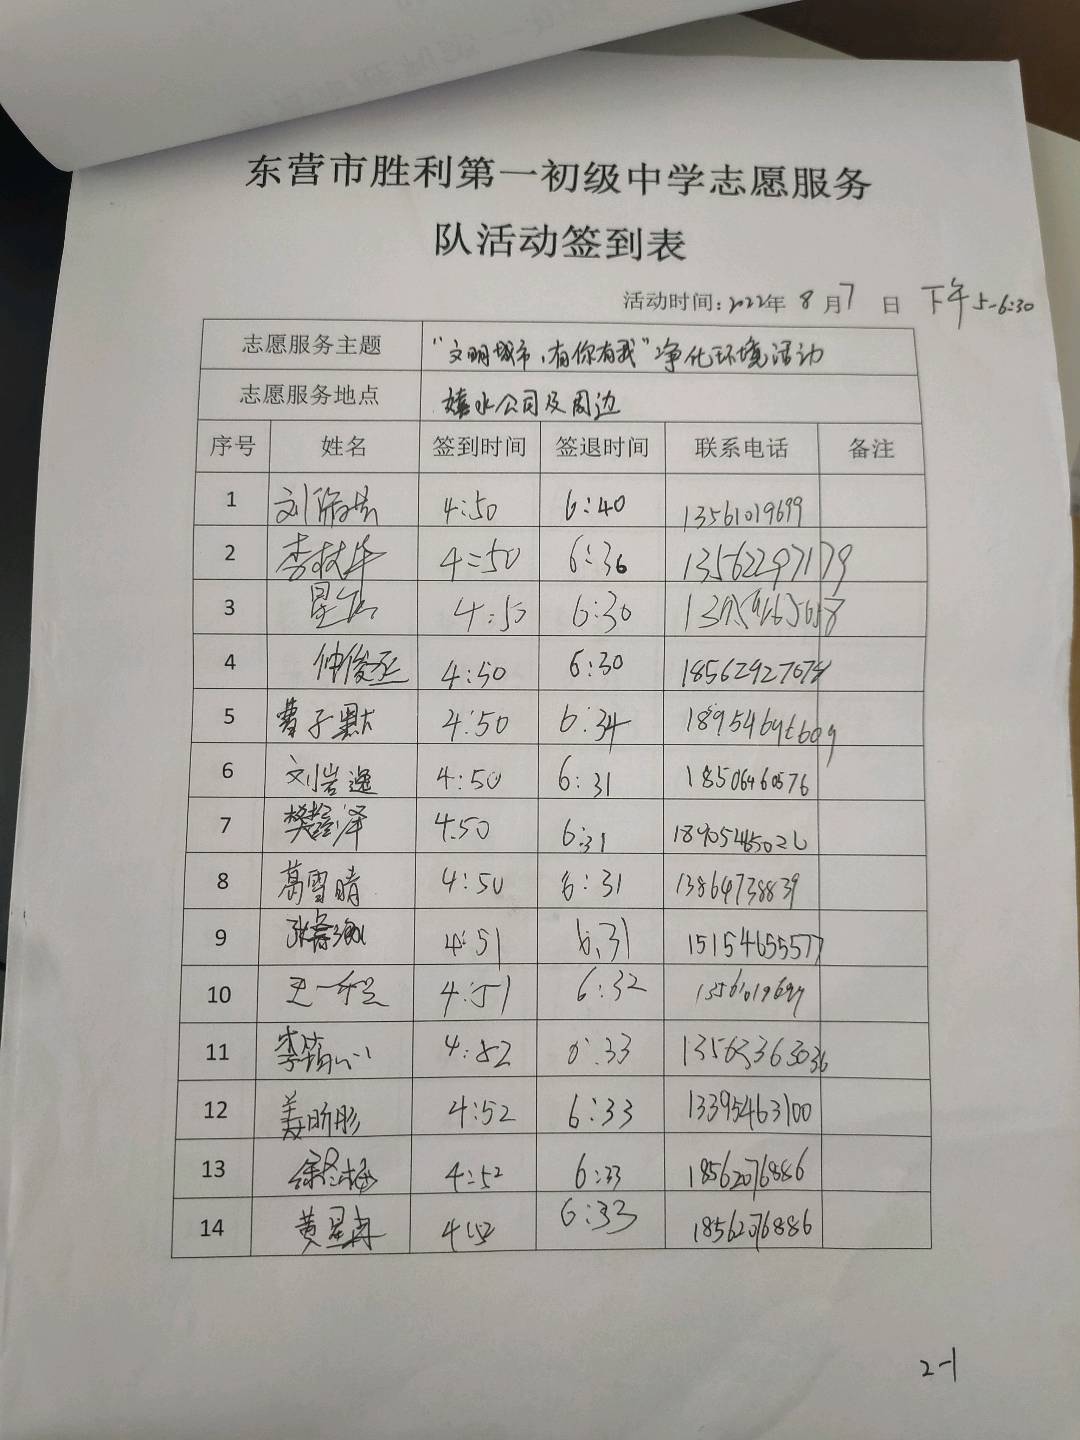 东营市胜利第一初级中学志愿服务
队活动签到表
活动时间：2022年 8 月 7 日 下午 5-6:30
志愿服务主题 “文明城市，有你有我”净化环境活动
志愿服务地点 嬉水公司及周边
序号 姓名 签到时间 签退时间 联系电话 备注
1 4:50 6:40 13561019699
2 4:50 6:36 13562297179
3 4:50 6:30
4 仲俊丞 4:50 6:30 18562927078
5 曹子默 4:50 6:34
6 刘岩逸 4:50 6:31 18506460576
7 4.50 6:31
8 葛雪晴 4:50 6:31 13864738839
9 4:51 6.31 15154655577
10 4:51 6:32 13561019699
11 4:52 6:33 13563363036
12 姜昕彤 4:52 6:33 13395463100
13 4:52 6:33 18562076886
14 黄星冉 6:33 18562076886
2-1